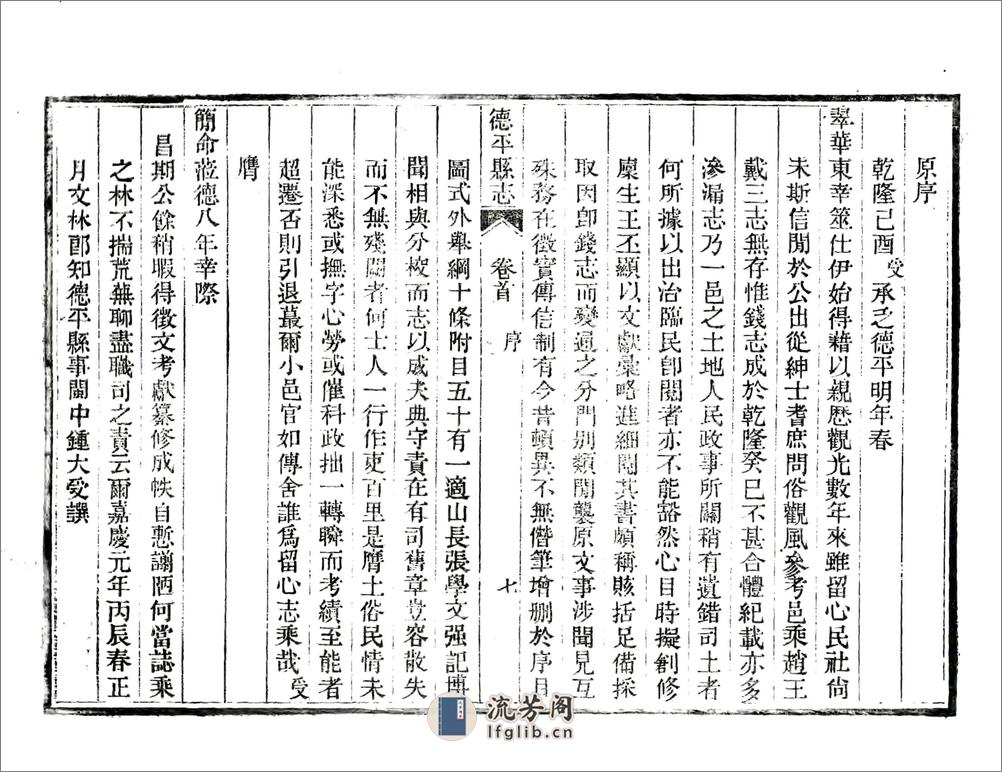 原序
乾隆己酉受承乏德平明年春
翠華東幸筮仕伊始得藉以親歷觀光數年來雖留心民社尙
未斯信聞於公出從紳士耆庶問俗觀風參考邑乘趙王
戴三志無存惟錢志成於乾隆癸巳不甚合體紀載亦多
滲漏志乃一邑之土地人民政事所關稍有遺錯司土者
何所據以出治臨民卽閱者亦不能豁然心目時擬創修
廩生王丕顯以文獻彙略進細閱其書頗稱賅括足備採
取因卽錢志而變通之分門別類閒襲原文事涉聞見互
殊務在徵實傳信制有今昔頓異不無僭筆增刪於序目
德平縣志 卷首 序 七
圖式外舉綱十條附目五十有一適山長張學文强記博
聞相與分校而志以成夫典守責在有司舊章豈容散失
而不無殘闕者何士人一行作吏百里是膺土俗民情未
能深悉或撫字心勞或催科政拙一轉瞬而考績至能者
超遷否則引退蕞爾小邑官如傳舍誰爲留心志乘哉受
膺
簡命蒞德八年幸際
昌期公餘稍暇得徵文考獻纂修成帙自慙謭陋何當誌乘
之林不揣荒蕪聊盡職司之責云爾嘉慶元年丙辰春正
月文林郎知德平縣事閩中鍾大受譔
流芳阁
lfglib.cn